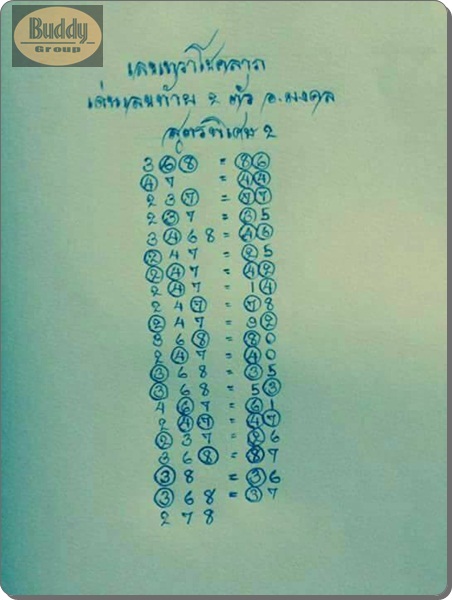 Buddy
Group
เลขเทวาโชคลาภ
เด่นเลขท้าย 2 ตัว อ.มงคล
สูตรพิเศษ 2
3 6 8 = 8 6
4 7 = 4 4
2 3 7 = 7 7
2 3 7 = 3 5
3 4 6 8 = 4 3
2 4 7 = 2 5
2 4 7 = 4 2
2 4 7 = 1 4
2 4 7 = 7 8
2 4 7 = 9 2
3 6 8 = 8 0
2 4 7 = 4 0
3 6 8 = 3 5
3 6 8 = 5 3
4 6 7 = 6 1
2 4 7 = 4 7
2 3 7 = 2 6
3 6 8 = 8 7
3 8 = 3 6
3 6 8 = 3 7
2 7 8